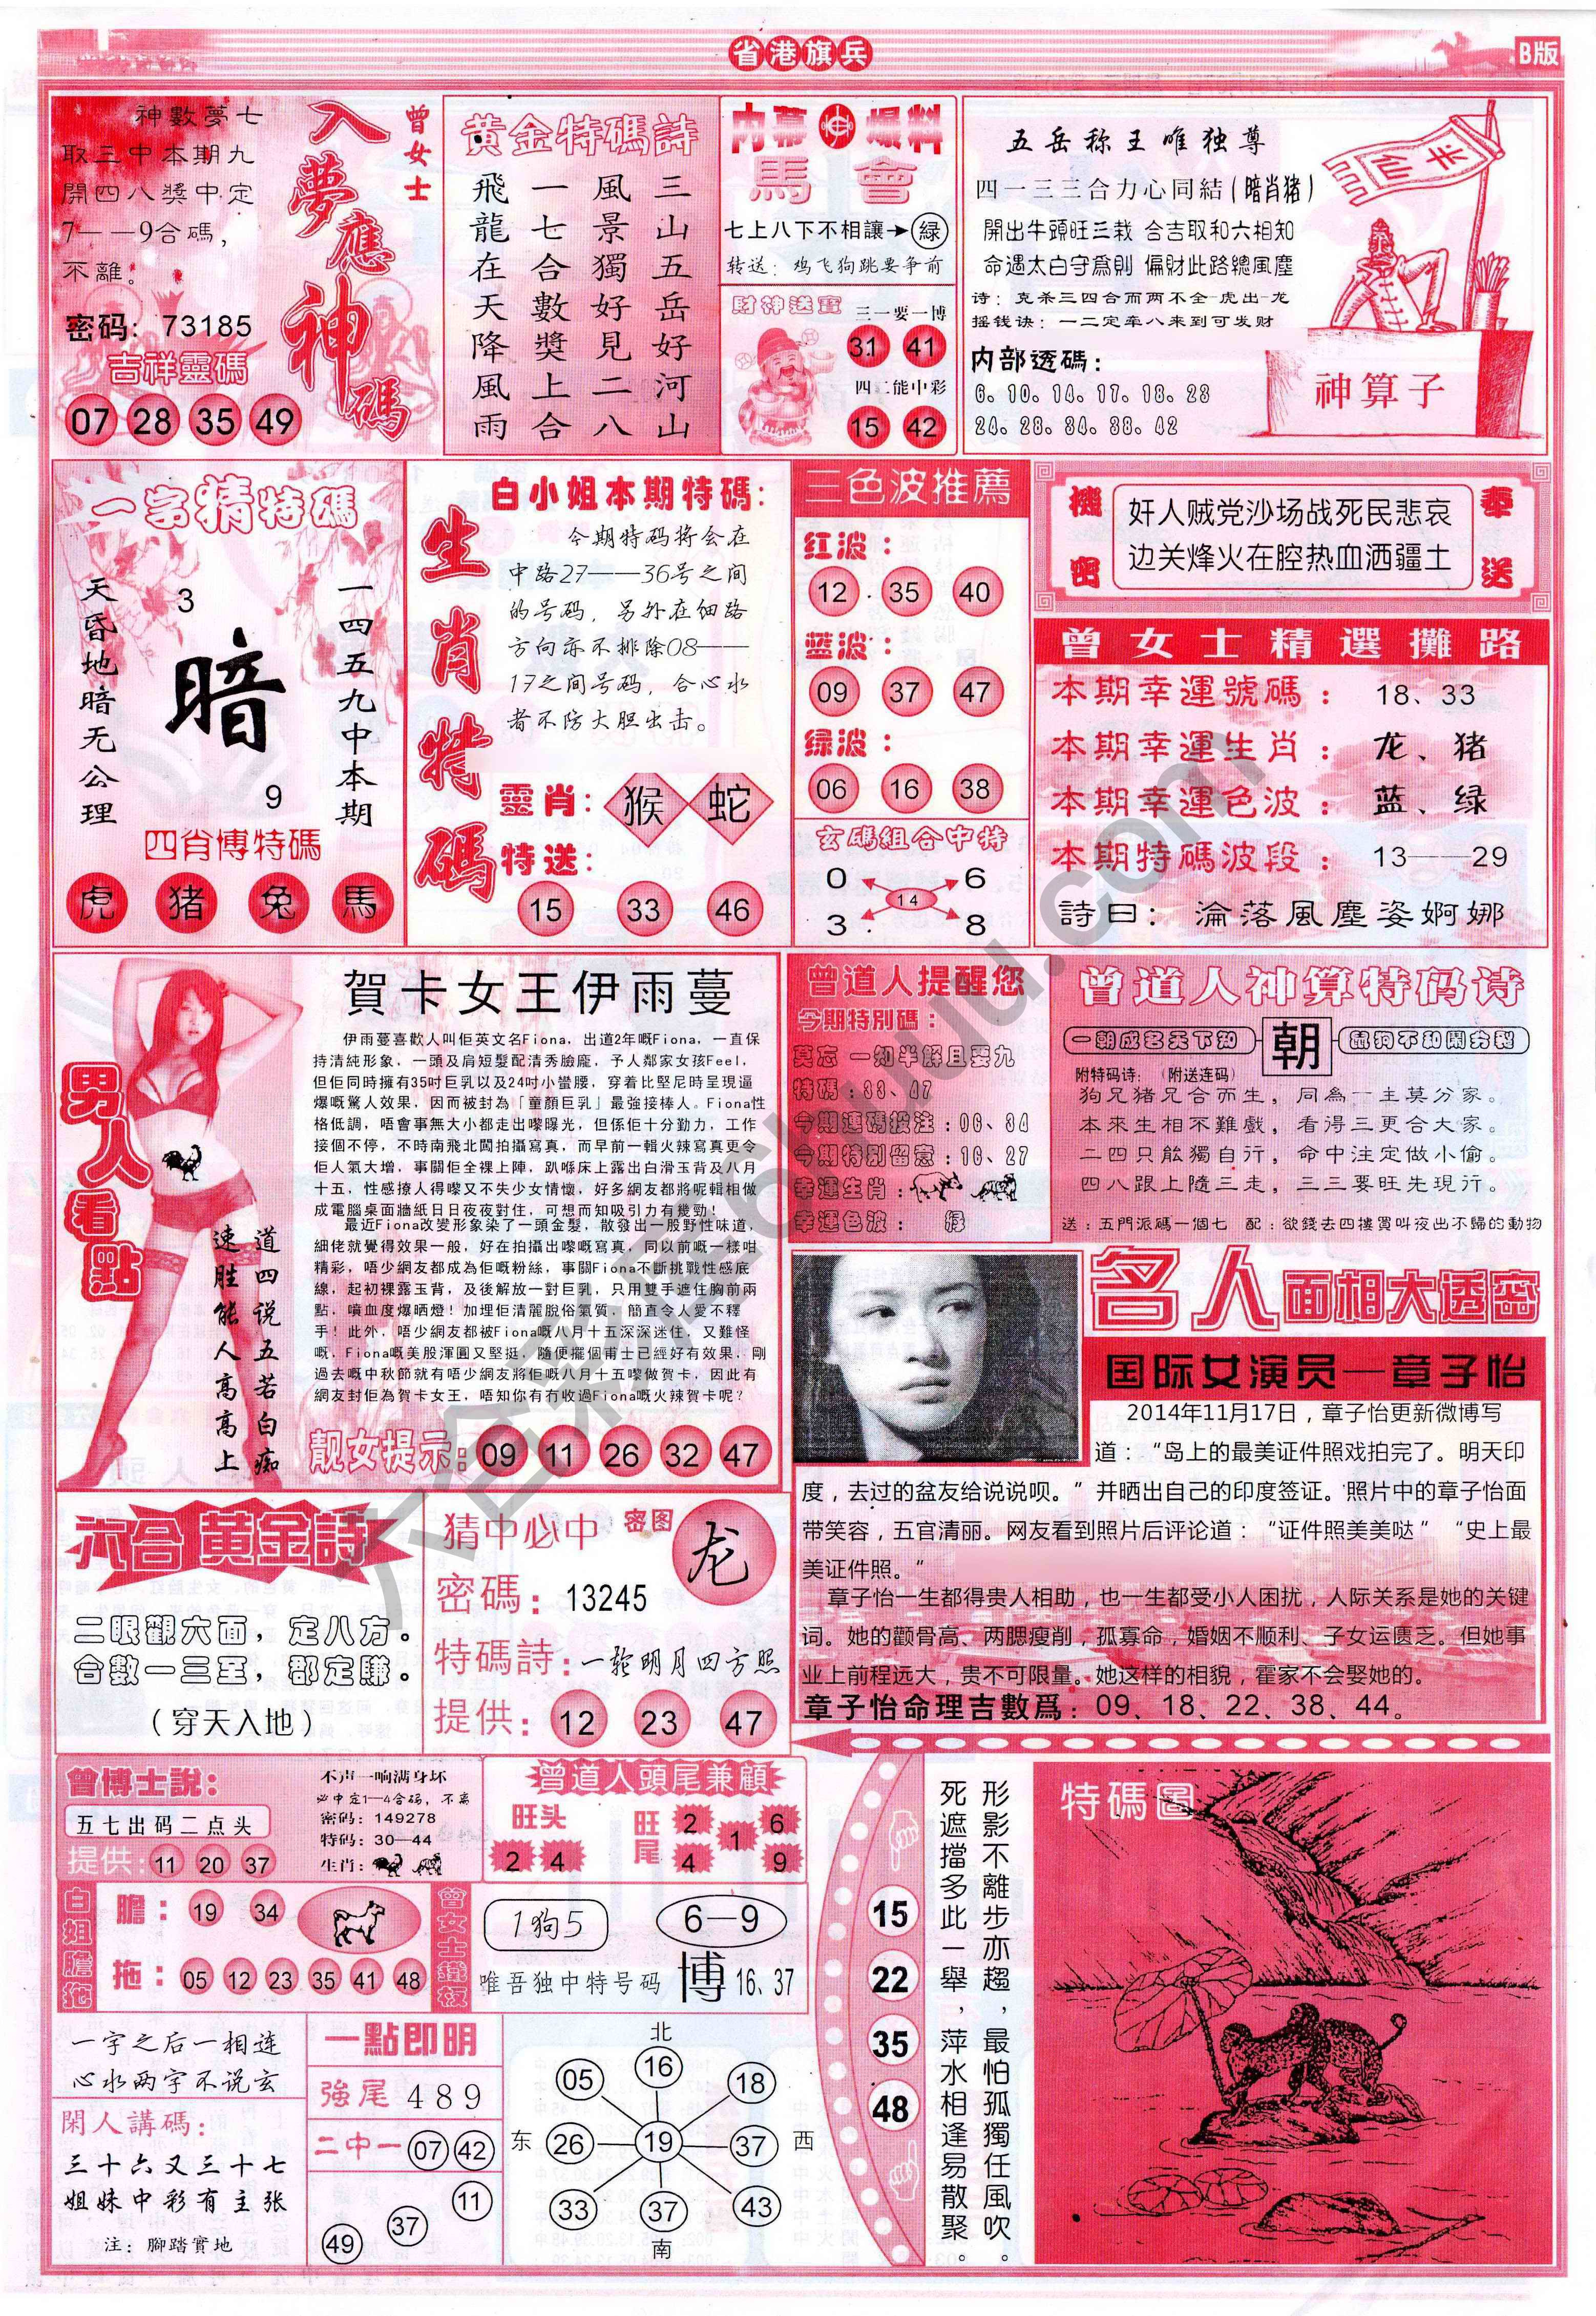 省港旗兵
B版
曾女士
入夢應神碼
神數夢七
取三中本期九
開四八獎中定
7——9合碼，
不離。
密码：73185
吉祥靈碼
07 28 35 49
黄金特碼詩
三山五岳好河山
風景獨好見二八
一七合數獎上合
飛龍在天降風雨
内幕爆料
馬會
七上八下不相讓→緑
转送：鸡飞狗跳要争前
財神送寶
三一要一博
31 41
四二能中彩
15 42
五岳称王唯独尊
四一三三合力心同結(暗肖猪)
開出牛頭旺三栽 合吉取和六相知
命遇太白守爲則 偏財此路總風塵
诗：克杀三四合而两不全-虎出-龙
摇钱诀：一二定牵八来到可发财
内部透碼：
6、10、14、17、18、23
24、28、34、38、42
半仙
神算子
一字猜特碼
一四五九中本期
3
暗
9
天昏地暗无公理
四肖博特碼
虎 猪 兔 馬
生肖特碼
白小姐本期特碼：
今期特码将会在
中路27——36号之间
的号码，另外在细路
方向亦不排除08——
17之间号码，合心水
者不防大胆出击。
靈肖：猴 蛇
特送：
15 33 46
三色波推薦
红波：
12 35 40
蓝波：
09 37 47
绿波：
06 16 38
玄碼組合中特
0 6
14
3 8
機密
奉送
奸人贼党沙场战死民悲哀
边关烽火在腔热血洒疆土
曾女士精選攤路
本期幸運號碼：18、33
本期幸運生肖：龙、猪
本期幸運色波：蓝、绿
本期特碼波段：13——29
詩曰：淪落風塵姿婀娜
男人看點
道四说五若白痴
速胜能人高高上
賀卡女王伊雨蔓
伊雨蔓喜歡人叫佢英文名Fiona，出道2年嘅Fiona，一直保
持清純形象，一頭及肩短髮配清秀臉龐，予人鄰家女孩Feel，
但佢同時擁有35吋巨乳以及24吋小蠻腰，穿着比堅尼時呈現逼
爆嘅驚人效果，因而被封為「童顏巨乳」最強接棒人。Fiona性
格低調，唔會事無大小都走出嚟曝光，但係佢十分勤力，工作
接個不停，不時南飛北闖拍攝寫真，而早前一輯火辣寫真更令
佢人氣大增，事關佢全裸上陣，趴喺床上露出白滑玉背及八月
十五，性感撩人得嚟又不失少女情懷，好多網友都將呢輯相做
成電腦桌面牆紙日日夜夜對住，可想而知吸引力有幾勁！
最近Fiona改變形象染了一頭金髮，散發出一股野性味道，
細佬就覺得效果一般，好在拍攝出嚟嘅寫真，同以前嘅一樣咁
精彩，唔少網友都成為佢嘅粉絲，事關Fiona不斷挑戰性感底
線，起初裸露玉背，及後解放一對巨乳，只用雙手遮住胸前兩
點，噴血度爆晒燈！加埋佢清麗脫俗氣質，簡直令人愛不釋
手！此外，唔少網友都被Fiona嘅八月十五深深迷住，又難怪
嘅，Fiona嘅美股渾圓又堅挺，隨便擺個甫士已經好有效果，剛
過去嘅中秋節就有唔少網友將佢嘅八月十五嚟做賀卡，因此有
網友封佢為賀卡女王，唔知你有冇收過Fiona嘅火辣賀卡呢？
靓女提示：09 11 26 32 47
曾道人提醒您
今期特別碼：
莫忘 一知半解且要九
特碼：33、47
今期連碼投注：06、34
今期特別留意：16、27
幸運生肖：
幸運色波： 绿
曾道人神算特码诗
一朝成名天下知 朝 鼠狗不和鬧分裂
附特码诗：(附送连码)
狗兄豬兄合而生，同為一主莫分家。
本來生相不難戲，看得三更合大家。
二四只能獨自行，命中注定做小偷。
四八跟上隨三走，三三要旺先現行。
送：五門派碼一個七 配：欲錢去四樓買叫夜出不歸的動物
名人面相大透密
国际女演员—章子怡
2014年11月17日，章子怡更新微博写
道：“岛上的最美证件照戏拍完了。明天印
度，去过的盆友给说说呗。”并晒出自己的印度签证。照片中的章子怡面
带笑容，五官清丽。网友看到照片后评论道：“证件照美美哒”“史上最
美证件照。”
章子怡一生都得贵人相助，也一生都受小人困扰，人际关系是她的关键
词。她的颧骨高、两腮瘦削，孤寡命，婚姻不顺利、子女运匮乏。但她事
业上前程远大，贵不可限量。她这样的相貌，霍家不会娶她的。
章子怡命理吉數爲：09、18、22、38、44。
六合黄金詩
二眼觀六面，定八方。
合數一三至，郡定賺。
（穿天入地）
猜中必中 密图 龙
密碼：13245
特碼詩：一轮明月四方照
提供：12 23 47
曾博士說：
五七出码二点头
提供：11 20 37
不声一响满身坏
必中定1—4合码，不离
密码：149278
特码：30—44
生肖：
曾道人頭尾兼顧
旺头
2 4
旺尾
2 6
1
4 9
白姐膽拖
膽：19 34
拖：05 12 23 35 41 48
曾女士鐵板
1狗5 6—9
唯吾独中特号码 博 16、37
一字之后一相连
心水两字不说玄
閑人講碼：
三十六又三十七
姐妹中彩有主张
注：腳踏實地
一點即明
強尾 489
二中一 07 42
11
37
49
北
05 16 18
东 26 19 37 西
33 37 43
南
15
22
35
48
形影不離步亦趨，最怕孤獨任風吹。
死遮擋多此一舉，萍水相逢易散聚。
特碼圖
六合彩库6huuu.com